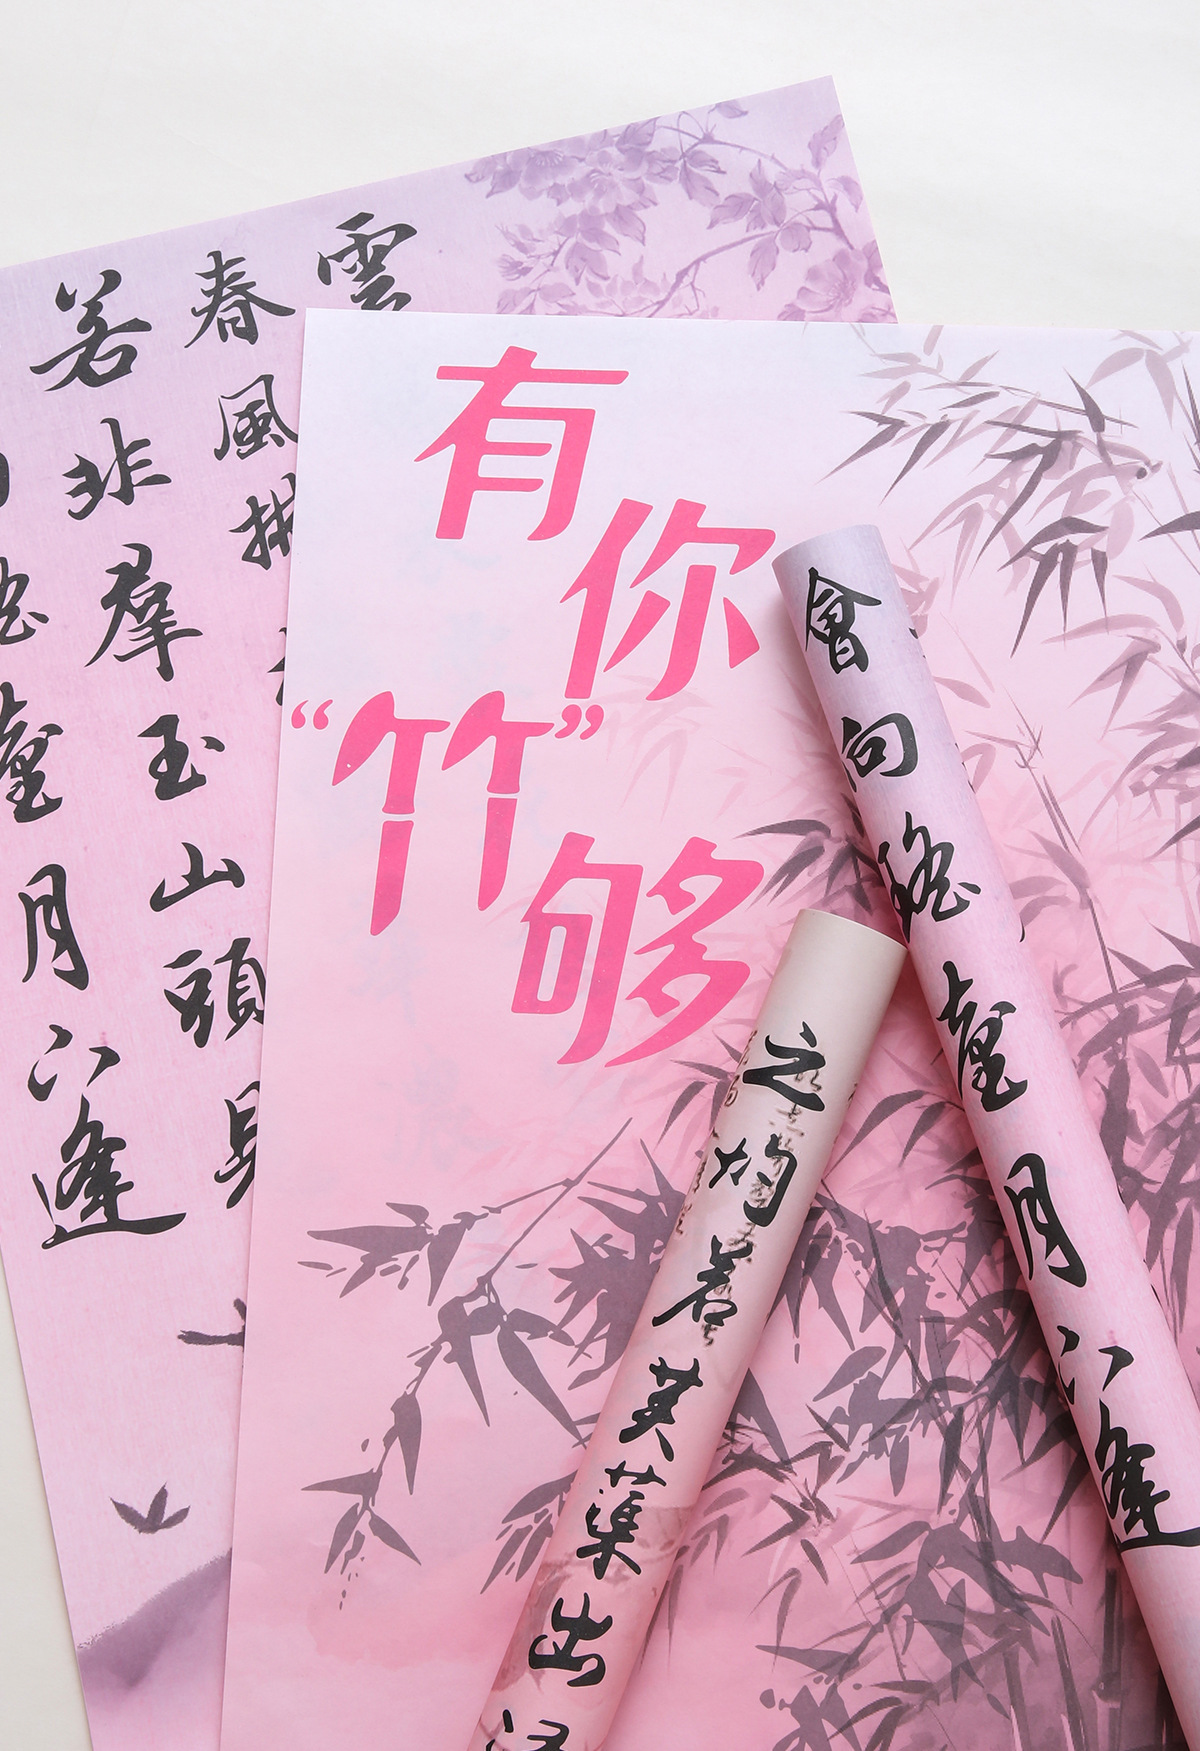 雲
春風拂
若非羣玉山頭見
臺月下逢
有你
“竹”够
會向瑤臺月下逢
之灼若芙蕖出